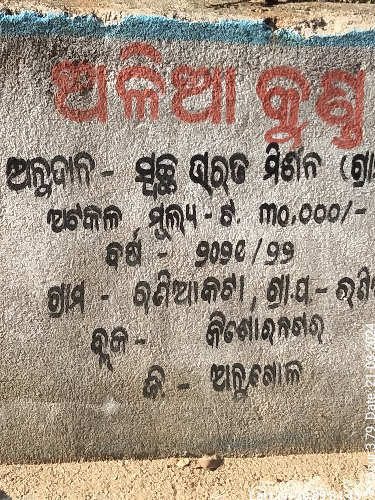 ଅଳିଆ କୁଣ୍ଡ
ଅନୁଦାନ - ସ୍ୱଚ୍ଛ ଭାରତ ମିଶନ (ଗ୍ରା
ଅଟକଳ ମୂଲ୍ୟ - ଟ. ୩୦,୦୦୦/-
ବର୍ଷ - ୨୦୨୧/୨୨
ଗ୍ରାମ - ରଣିଆକଟା, ଗ୍ରା.ପ. - ରଣି
ବ୍ଲକ - କିଶୋରନଗର
ଜି. - ଅନୁଗୋଳ